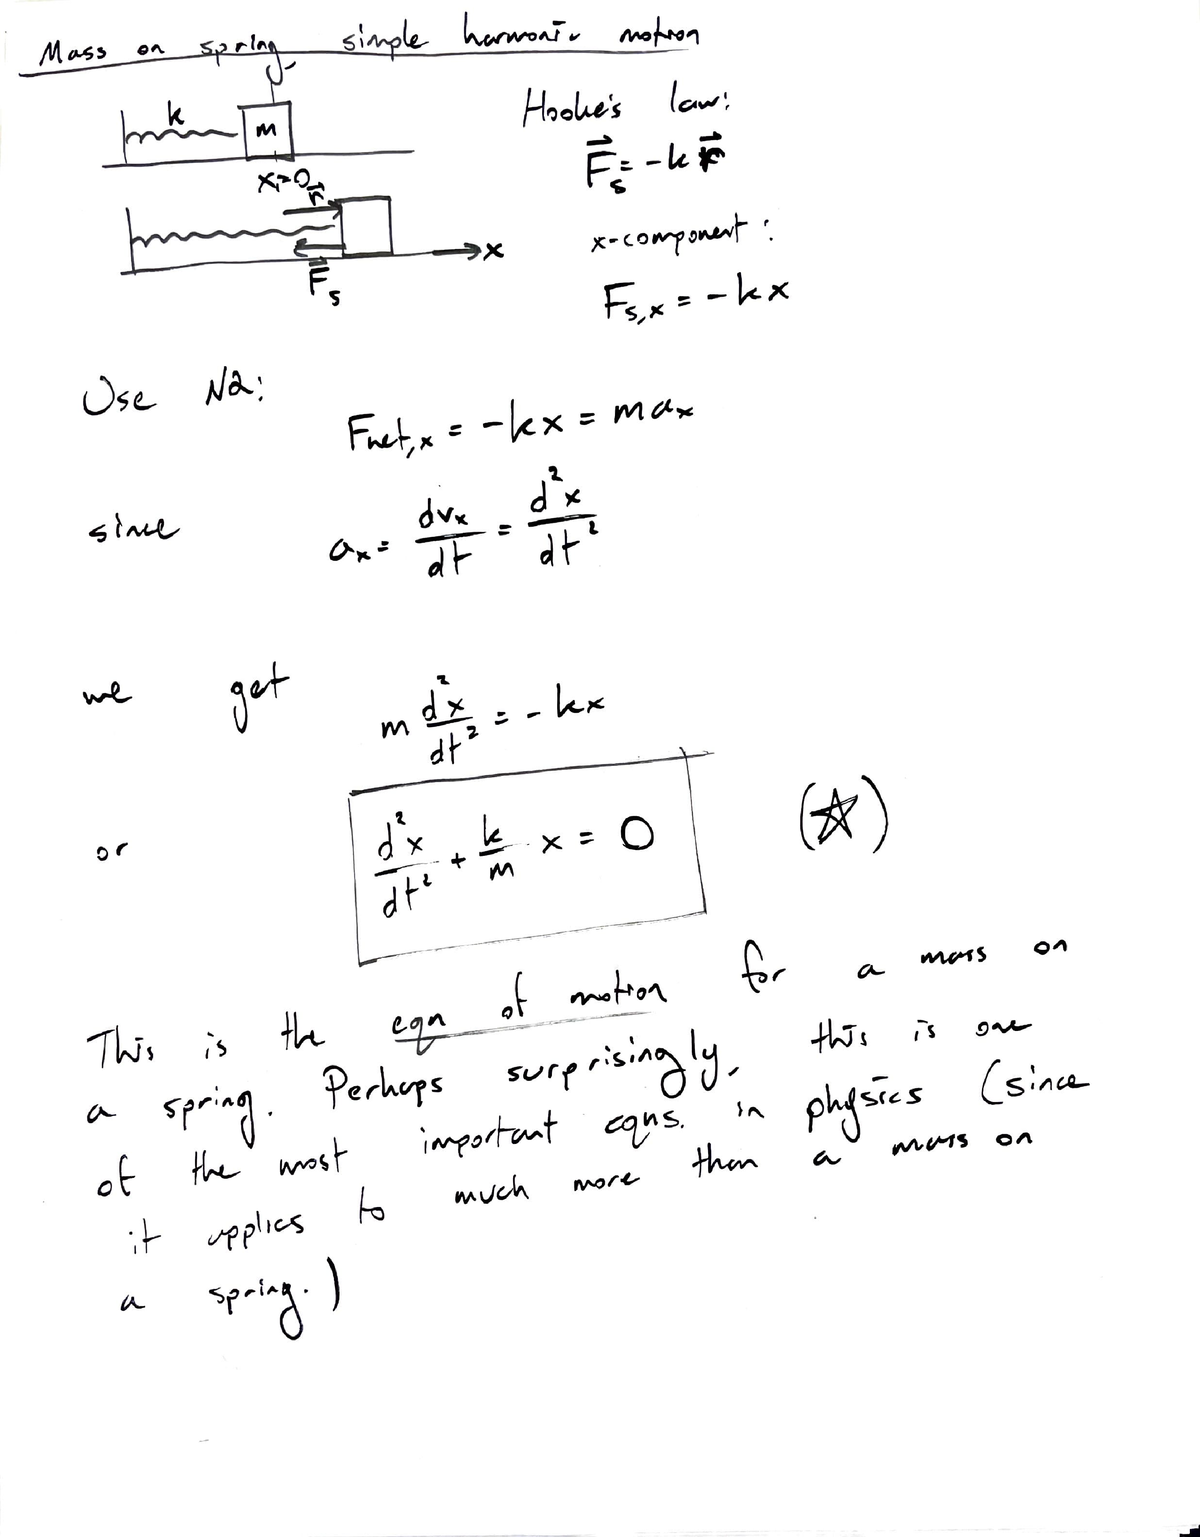 Mass on spring simple harmonic motion
k
m
x=0
r⃗
F⃗s
x
Hooke's law:
F⃗s = -k r⃗
x-component:
Fs,x = -kx
Use N2:
Fnet,x = -kx = max
since ax = dvx/dt = d²x/dt²
we get m d²x/dt² = -kx
or d²x/dt² + k/m x = 0 (☆)
This is the eqn of motion for a mass on
a spring. Perhaps surprisingly, this is one
of the most important eqns. in physics (since
it applies to much more than a mass on
a spring.)